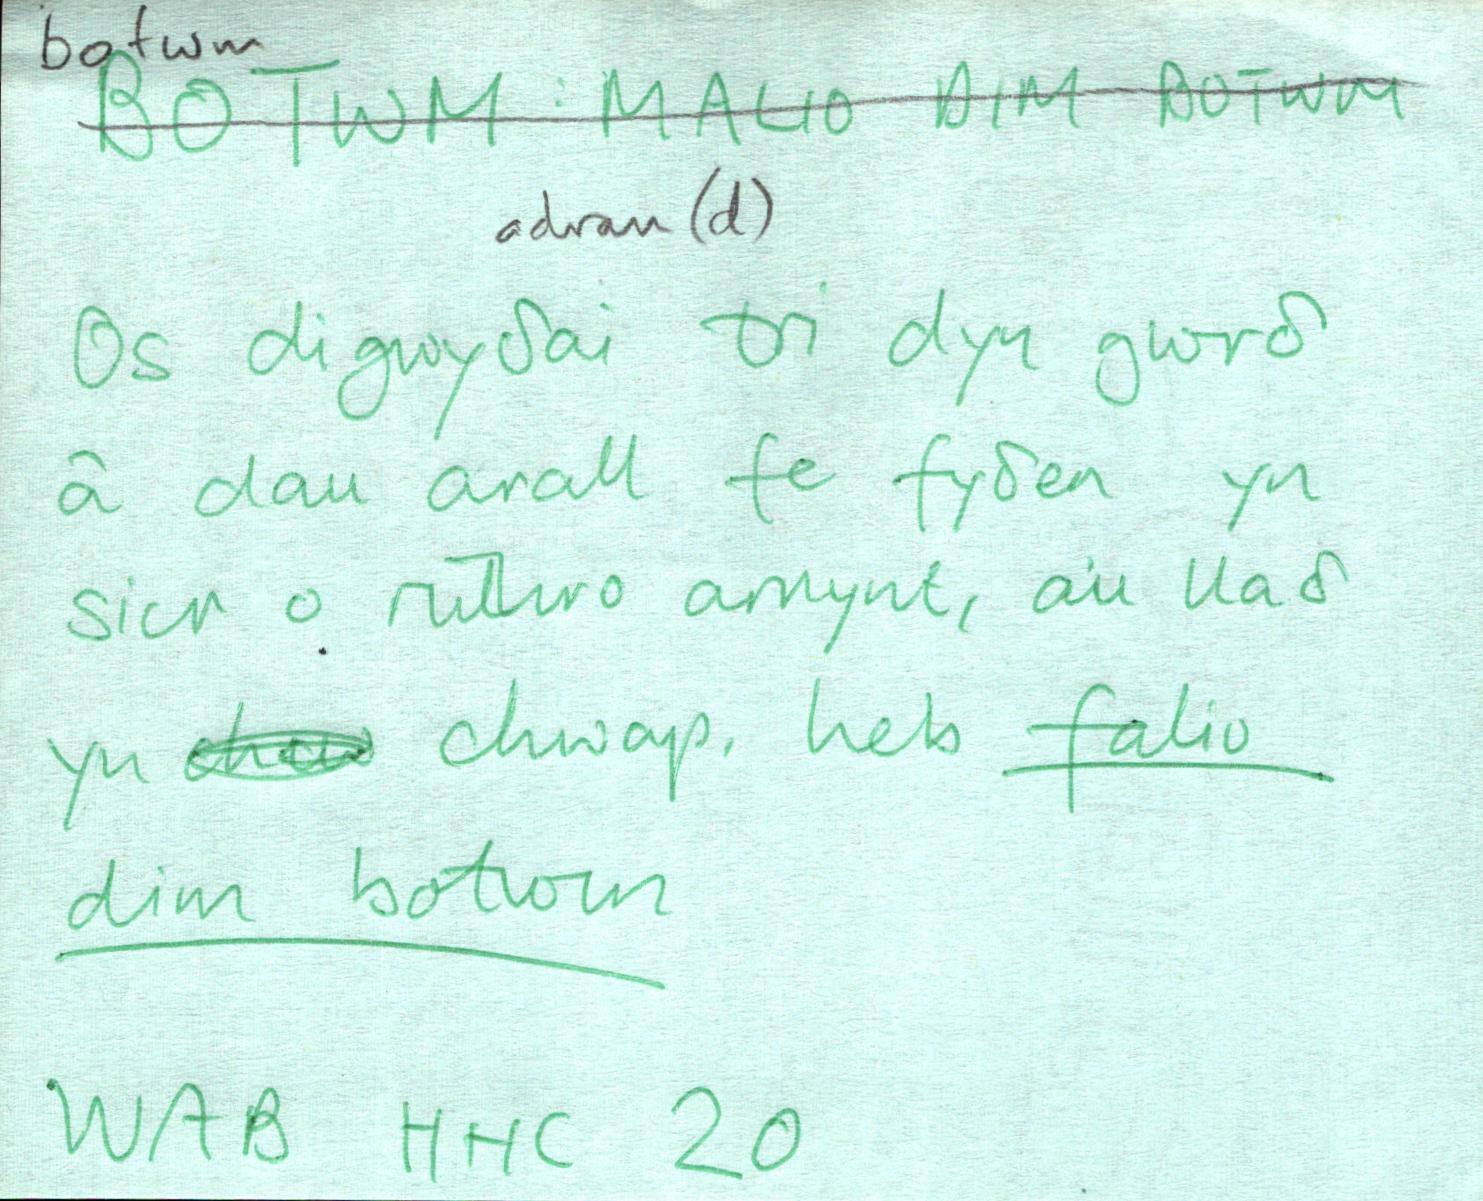 botwm
BOTWM : MALIO DIM BOTWM
adran (d)
Os digwyδai tri dyn gwrδ
â dau arall fe fyδen yn
sicr o ruthro arnynt, a'u llaδ
yn chwap, heb falio
dim botwm
WAB HHC 20